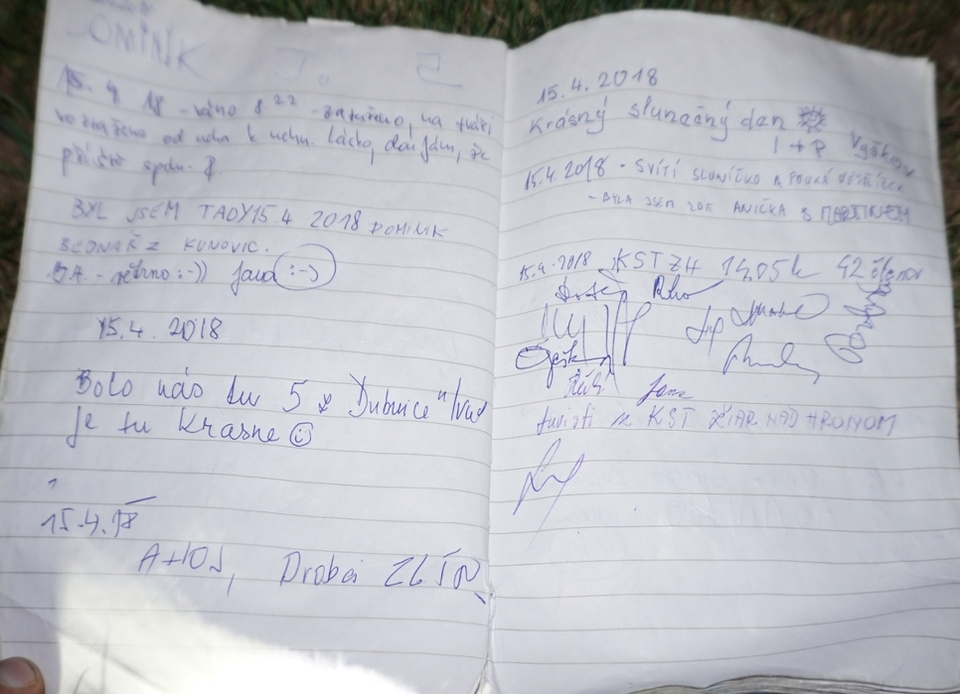 DOMINIK J. Z
15. 4 18 - ráno 8²² - zataženo, na tváři
roztaženo od ucha k uchu. Lácho, doufám, že
příště spolu.
BYL JSEM TADY 15.4 2018 DOMINIK
BEDNAŘ Z KUNOVIC.
- větrno :-)) Jana :-)
15.4. 2018
Bolo nás tu 5 z Dubnice n/Váh
je tu krasne ☺
15.4.18
AHOJ, Drobci ZLÍN
15.4.2018
Krásný slunečný den
I + P Vyškov
15.4.2018 - SVÍTÍ SLUNÍČKO A FOUKÁ VĚTŘÍČEK
- BYLA JSEM ZDE ANIČKA S MARTINEM
15.4.2018 KST ZH 14,05 h 42 členov
Jana
turisti z KST ŽIAR NAD HRONOM